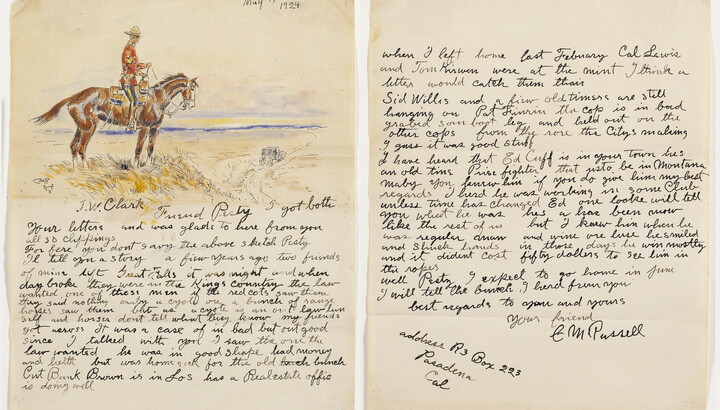 May
1924
J.W. Clark
Friend Pesty I got bothe
Your letters and was glads to here from you
all so clippings
For here you dont savy the above sketch Pesty
Il tell you a story a few years ago two friends
of mine left Great Falls it was night and when
day broke they were in the Kings country the law
wanted one of these men if the red cots saw them
they said nothing maby a cyote ore a bunch of range
horses saw them but as a cyote is an out law him
self and horses dont tell what they know my friends
got across It was a case of in bad but out good
since I talked with you I saw the one the
law wanted he was in good shape had money
and helth but was home sick for the old bunch
Cut Bank Brown is in Los has a Real estate offis
is doing well
when I left home last February Cal Lewis
and Tom Kirwen were at the mint I think a
litter would catch them thair
Sid Willis and a fiew old timers are still
hanging on Pat the cop is in bad
grabed som boot leg and held out on the
other cops from the rore the Citys making
I guss it was good stuff
I have heard that Ed Cuff is in your town hes
an old time Pire fighter that usto be in Montana
maby you know him if you do give him my best
regards I herd he was working in some Club
unless time has changed Ed one looke will tell
you what he was hes a has been now
like the rest of us but I knew him when he
was regular man and wine ore luse he smiled
and shuck hands in those days he win mostly
and it dident cost fifty dollars to see him in
the ropes
well Pesty I expect to go home in June
I will tell the bunch I herd from you
best regards to you and yours
Your friend
C M Russell
address R3 Box 223
Pasadena
Cal